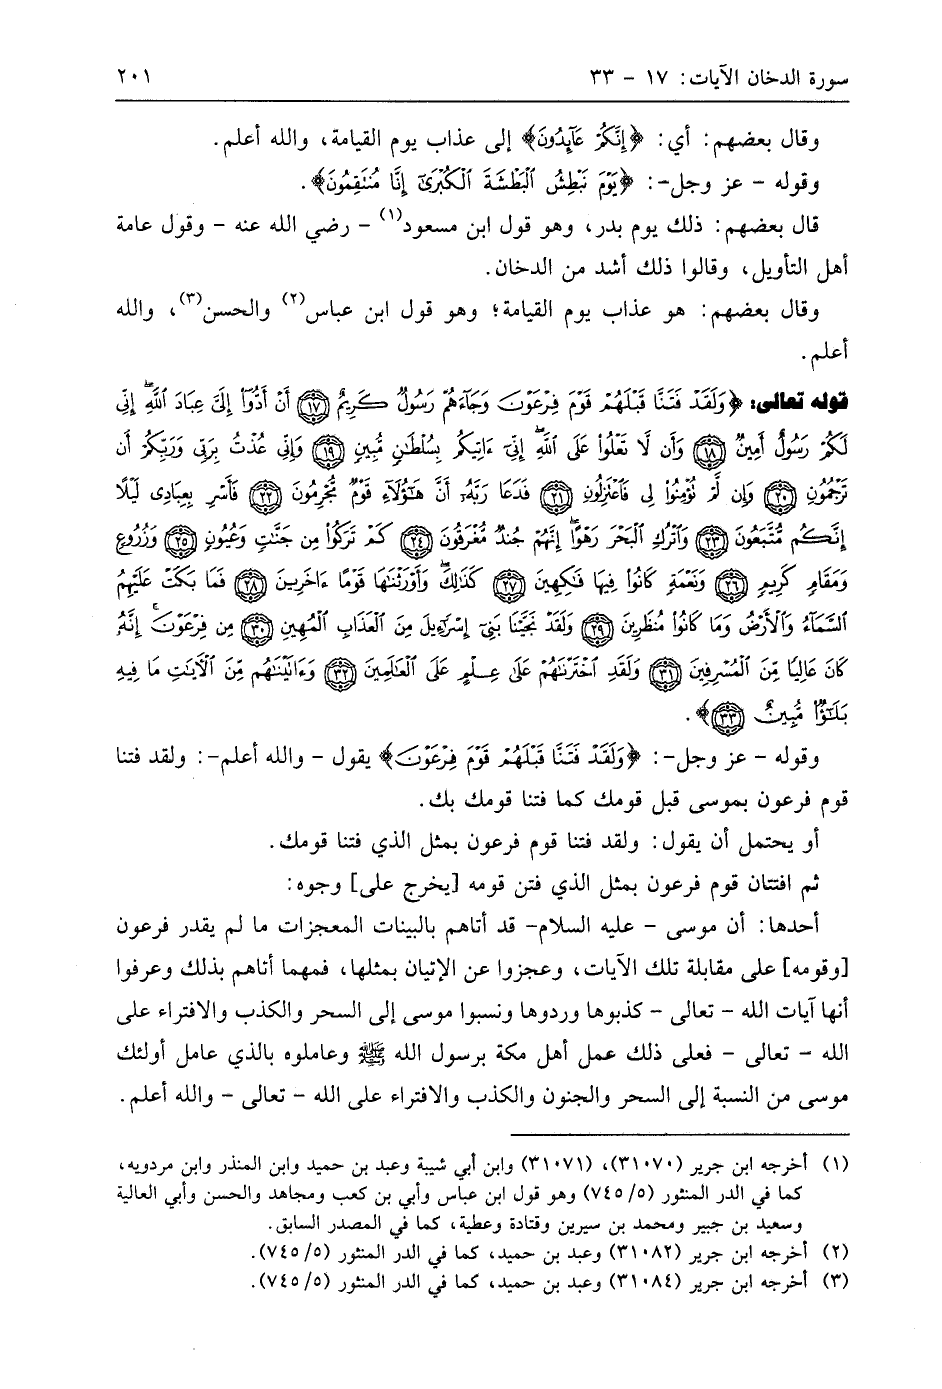 سورة الدخان الآيات: ١٧ - ٣٣ ٢٠١
وقال بعضهم: أي: ﴿إِنَّكُمْ عَآئِدُونَ﴾ إلى عذاب يوم القيامة، والله أعلم.
وقوله - عز وجل-: ﴿يَوْمَ نَبْطِشُ ٱلْبَطْشَةَ ٱلْكُبْرَىٰٓ إِنَّا مُنتَقِمُونَ﴾.
قال بعضهم: ذلك يوم بدر، وهو قول ابن مسعود(١) - رضي الله عنه - وقول عامة
أهل التأويل، وقالوا ذلك أشد من الدخان.
وقال بعضهم: هو عذاب يوم القيامة؛ وهو قول ابن عباس(٢) والحسن(٣)، والله
أعلم.
قوله تعالى: ﴿وَلَقَدْ فَتَنَّا قَبْلَهُمْ قَوْمَ فِرْعَوْنَ وَجَآءَهُمْ رَسُولٌ كَرِيمٌ ١٧ أَنْ أَدُّوٓا۟ إِلَىَّ عِبَادَ ٱللَّهِ ۖ إِنِّى
لَكُمْ رَسُولٌ أَمِينٌ ١٨ وَأَن لَّا تَعْلُوا۟ عَلَى ٱللَّهِ ۖ إِنِّىٓ ءَاتِيكُم بِسُلْطَٰنٍ مُّبِينٍ ١٩ وَإِنِّى عُذْتُ بِرَبِّى وَرَبِّكُمْ أَن
تَرْجُمُونِ ٢٠ وَإِن لَّمْ تُؤْمِنُوا۟ لِى فَٱعْتَزِلُونِ ٢١ فَدَعَا رَبَّهُۥٓ أَنَّ هَٰٓؤُلَآءِ قَوْمٌ مُّجْرِمُونَ ٢٢ فَأَسْرِ بِعِبَادِى لَيْلًا
إِنَّكُم مُّتَّبَعُونَ ٢٣ وَٱتْرُكِ ٱلْبَحْرَ رَهْوًا ۖ إِنَّهُمْ جُندٌ مُّغْرَقُونَ ٢٤ كَمْ تَرَكُوا۟ مِن جَنَّٰتٍ وَعُيُونٍ ٢٥ وَزُرُوعٍ
وَمَقَامٍ كَرِيمٍ ٢٦ وَنَعْمَةٍ كَانُوا۟ فِيهَا فَٰكِهِينَ ٢٧ كَذَٰلِكَ ۖ وَأَوْرَثْنَٰهَا قَوْمًا ءَاخَرِينَ ٢٨ فَمَا بَكَتْ عَلَيْهِمُ
ٱلسَّمَآءُ وَٱلْأَرْضُ وَمَا كَانُوا۟ مُنظَرِينَ ٢٩ وَلَقَدْ نَجَّيْنَا بَنِىٓ إِسْرَٰٓءِيلَ مِنَ ٱلْعَذَابِ ٱلْمُهِينِ ٣٠ مِن فِرْعَوْنَ ۚ إِنَّهُۥ
كَانَ عَالِيًا مِّنَ ٱلْمُسْرِفِينَ ٣١ وَلَقَدِ ٱخْتَرْنَٰهُمْ عَلَىٰ عِلْمٍ عَلَى ٱلْعَٰلَمِينَ ٣٢ وَءَاتَيْنَٰهُم مِّنَ ٱلْءَايَٰتِ مَا فِيهِ
بَلَٰٓؤٌا۟ مُّبِينٌ ٣٣﴾.
وقوله - عز وجل-: ﴿وَلَقَدْ فَتَنَّا قَبْلَهُمْ قَوْمَ فِرْعَوْنَ﴾ يقول - والله أعلم-: ولقد فتنا
قوم فرعون بموسى قبل قومك كما فتنا قومك بك.
أو يحتمل أن يقول: ولقد فتنا قوم فرعون بمثل الذي فتنا قومك.
ثم افتتان قوم فرعون بمثل الذي فتن قومه [يخرج على] وجوه:
أحدها: أن موسى - عليه السلام- قد أتاهم بالبينات المعجزات ما لم يقدر فرعون
[وقومه] على مقابلة تلك الآيات، وعجزوا عن الإتيان بمثلها، فمهما أتاهم بذلك وعرفوا
أنها آيات الله - تعالى - كذبوها وردوها ونسبوا موسى إلى السحر والكذب والافتراء على
الله - تعالى - فعلى ذلك عمل أهل مكة برسول الله ﷺ وعاملوه بالذي عامل أولئك
موسى من النسبة إلى السحر والجنون والكذب والافتراء على الله - تعالى - والله أعلم.
(١) أخرجه ابن جرير (٣١٠٧٠)، (٣١٠٧١) وابن أبي شيبة وعبد بن حميد وابن المنذر وابن مردويه،
كما في الدر المنثور (٧٤٥/٥) وهو قول ابن عباس وأبي بن كعب ومجاهد والحسن وأبي العالية
وسعيد بن جبير ومحمد بن سيرين وقتادة وعطية، كما في المصدر السابق.
(٢) أخرجه ابن جرير (٣١٠٨٢) وعبد بن حميد، كما في الدر المنثور (٧٤٥/٥).
(٣) أخرجه ابن جرير (٣١٠٨٤) وعبد بن حميد، كما في الدر المنثور (٧٤٥/٥).